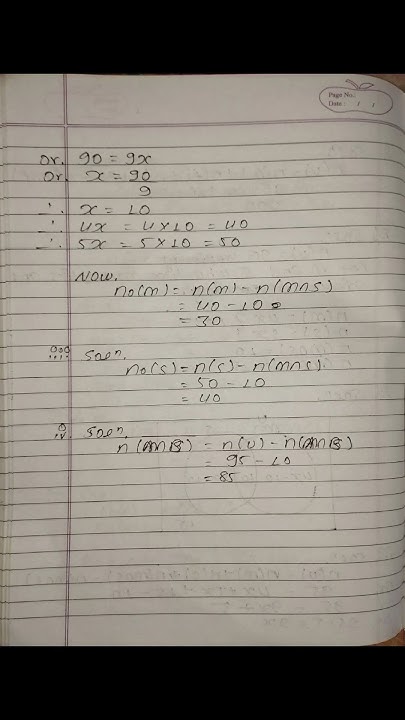 Page No.:
Date : / /
or, 90 = 9x
or, x = 90
9
∴ x = 10
∴ 4x = 4×10 = 40
∴ 5x = 5×10 = 50
Now,
no(m) = n(m) - n(m∩s)
= 40 - 10
= 30
iii. Soln,
no(s) = n(s) - n(m∩s)
= 50 - 10
= 40
iv. Soln,
= n(u) - n(A∩B)
= 95 - 10
= 85